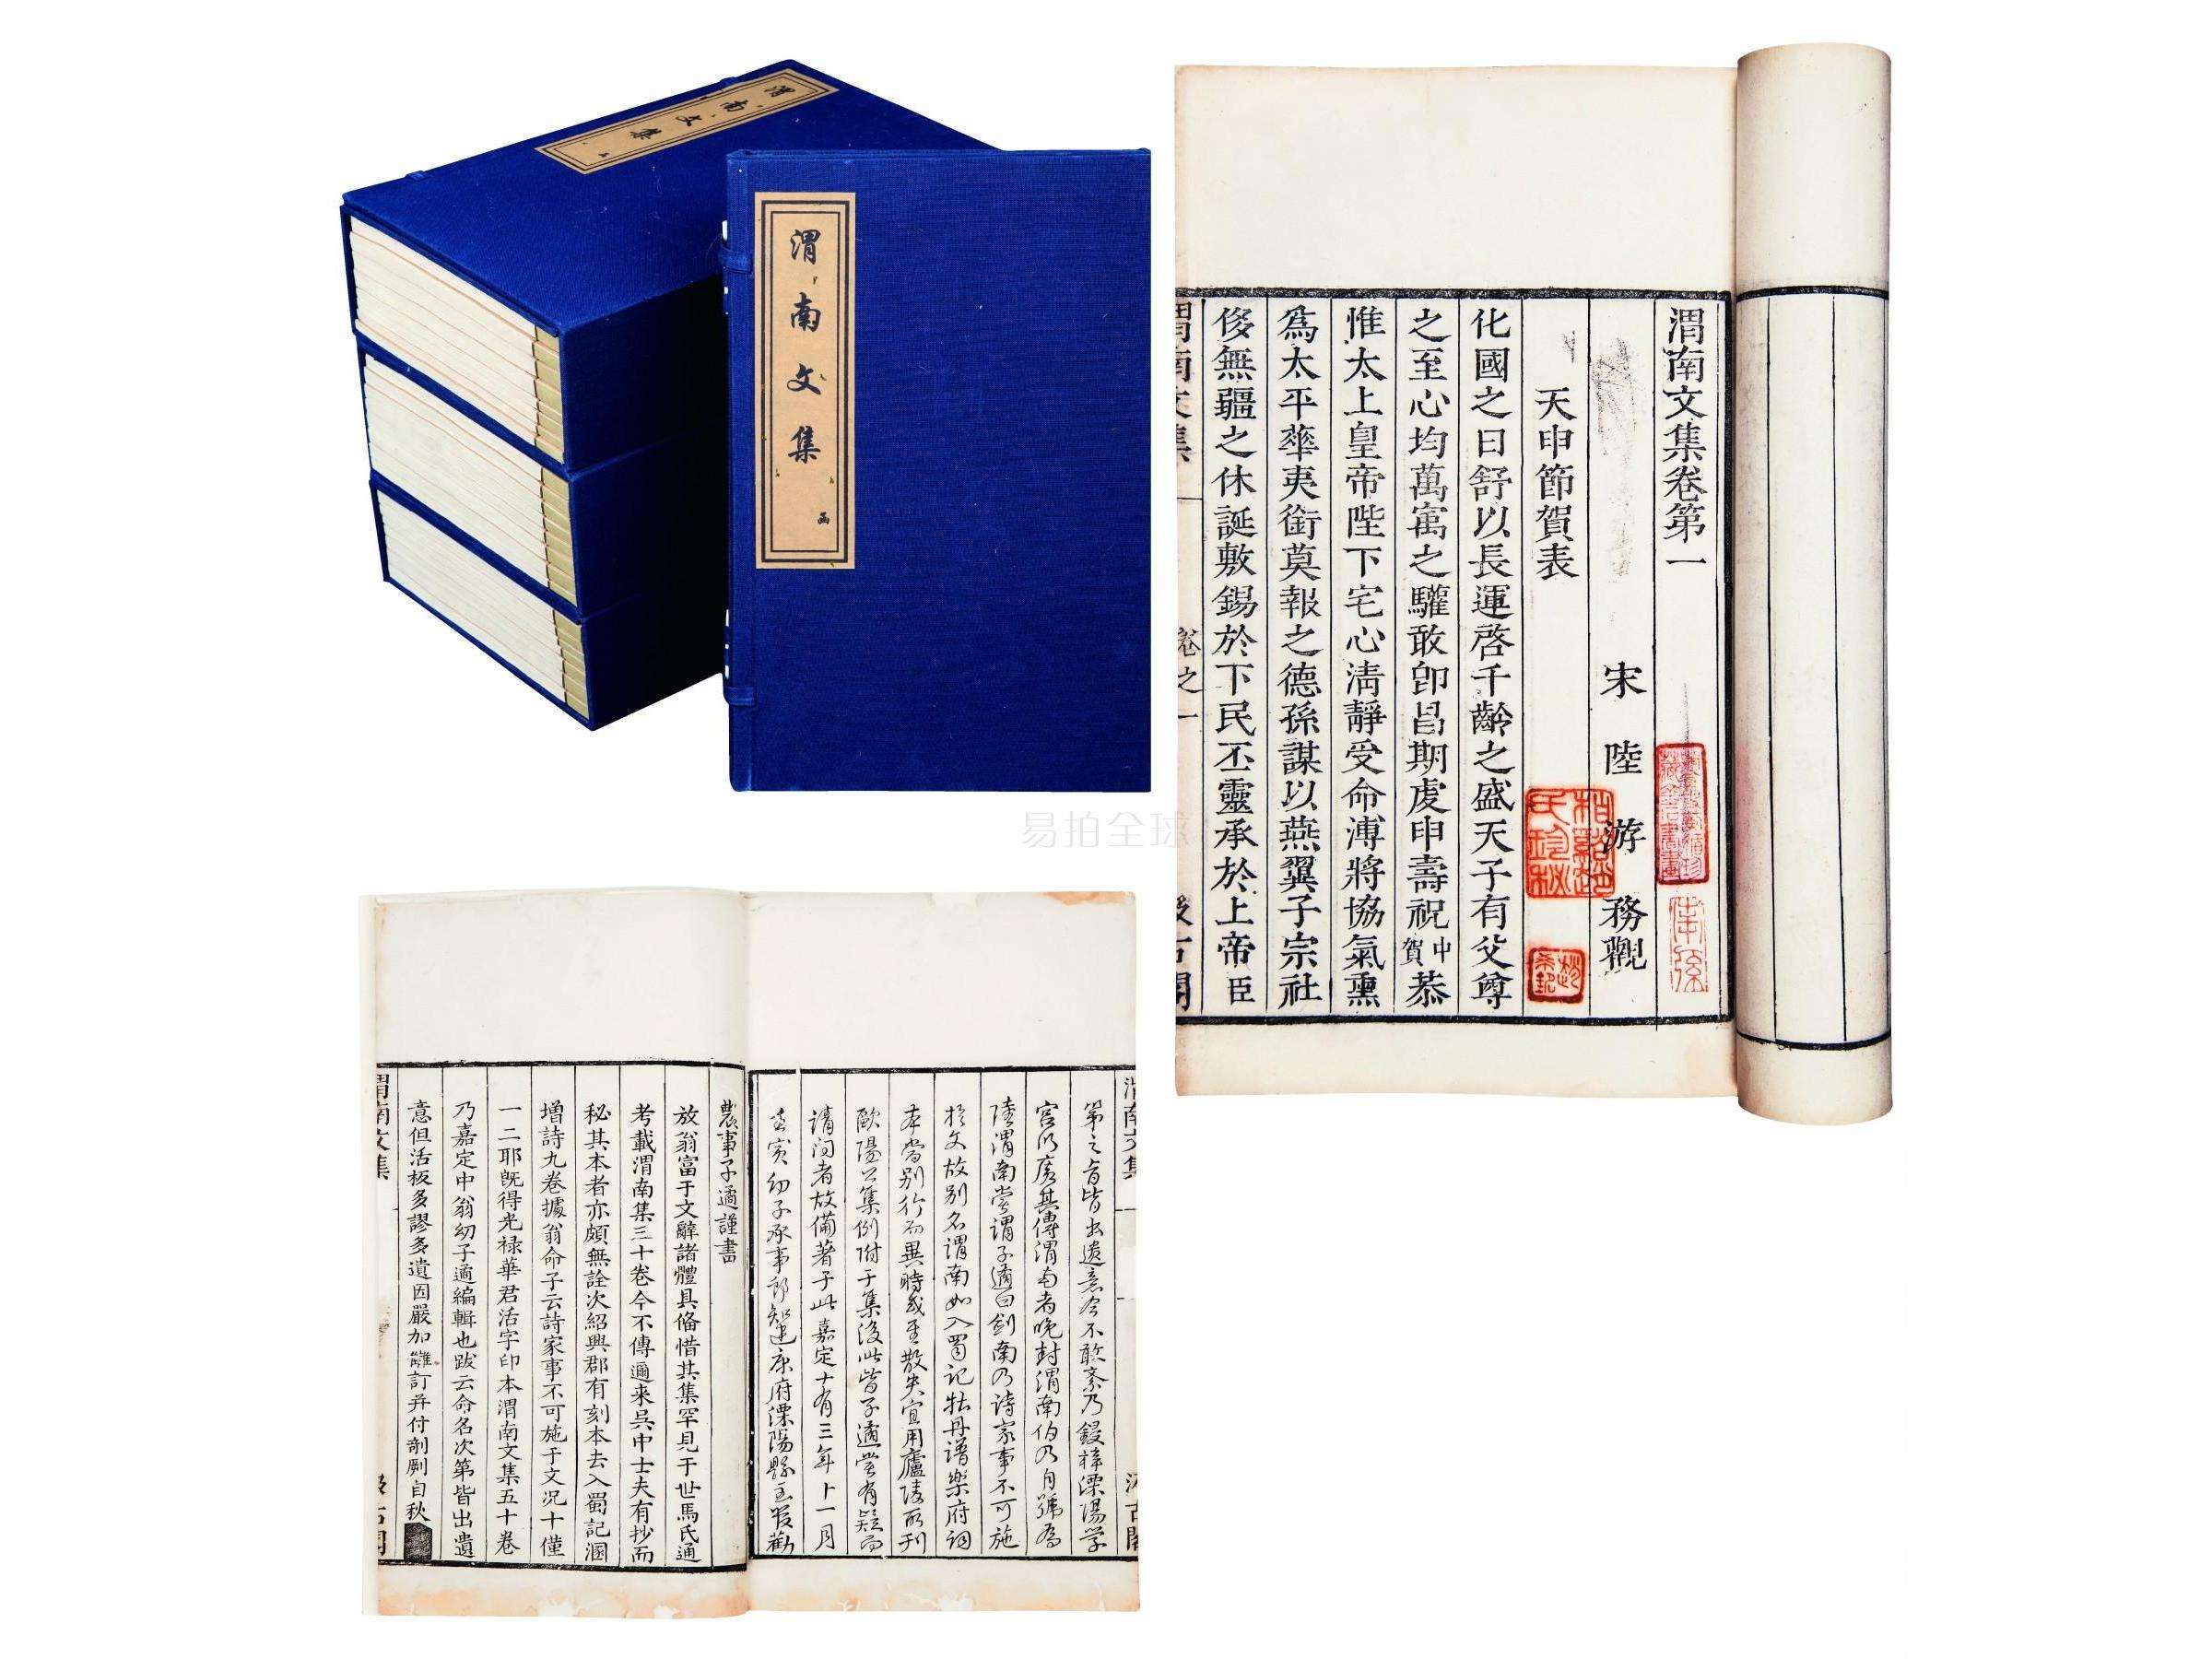 渭南文集
上
渭南文集
函
渭南文集卷第一
宋 陸 游 務觀
天申節賀表
化國之日舒以長運啓千齡之盛天子有父尊
之至心均萬㝢之驩敢卽昌期虔申壽祝中賀恭
惟太上皇帝陛下宅心淸靜受命溥將協氣熏
爲太平華夷銜莫報之德孫謀以燕翼子宗社
侈無疆之休誕敷錫於下民丕靈承於上帝臣
渭南文集
卷之一
汲古閣
易拍全球
渭南文集
汲古閣
第之旨皆出遺意今不敢紊乃鋟梓溧陽學
宮以廣其傳渭南者晚封渭南伯乃自號爲
陸渭南嘗謂子遹曰劍南乃詩家事不可施
於文故別名渭南如入蜀記牡丹譜樂府詞
本當別行而異時或至散失宜用廬陵所刊
歐陽公集例附于集後此皆子遹嘗有疑而
請問者故備著于此嘉定十有三年十一月
壬寅幼子承事郎知建康府溧陽縣主管勸
農事子遹謹書
放翁富于文辭諸體具備惜其集罕見于世馬氏通
考載渭南集三十卷今不傳邇來吳中士夫有抄而
秘其本者亦頗無詮次紹興郡有刻本去入蜀記溷
增詩九卷據翁命子云詩家事不可施于文况十僅
一二耶旣得光祿華君活字印本渭南文集五十卷
乃嘉定中翁幼子遹編輯也跋云命名次第皆出遺
意但活板多謬多遺因嚴加讎訂并付剞劂自秋
渭南文集
汲古閣